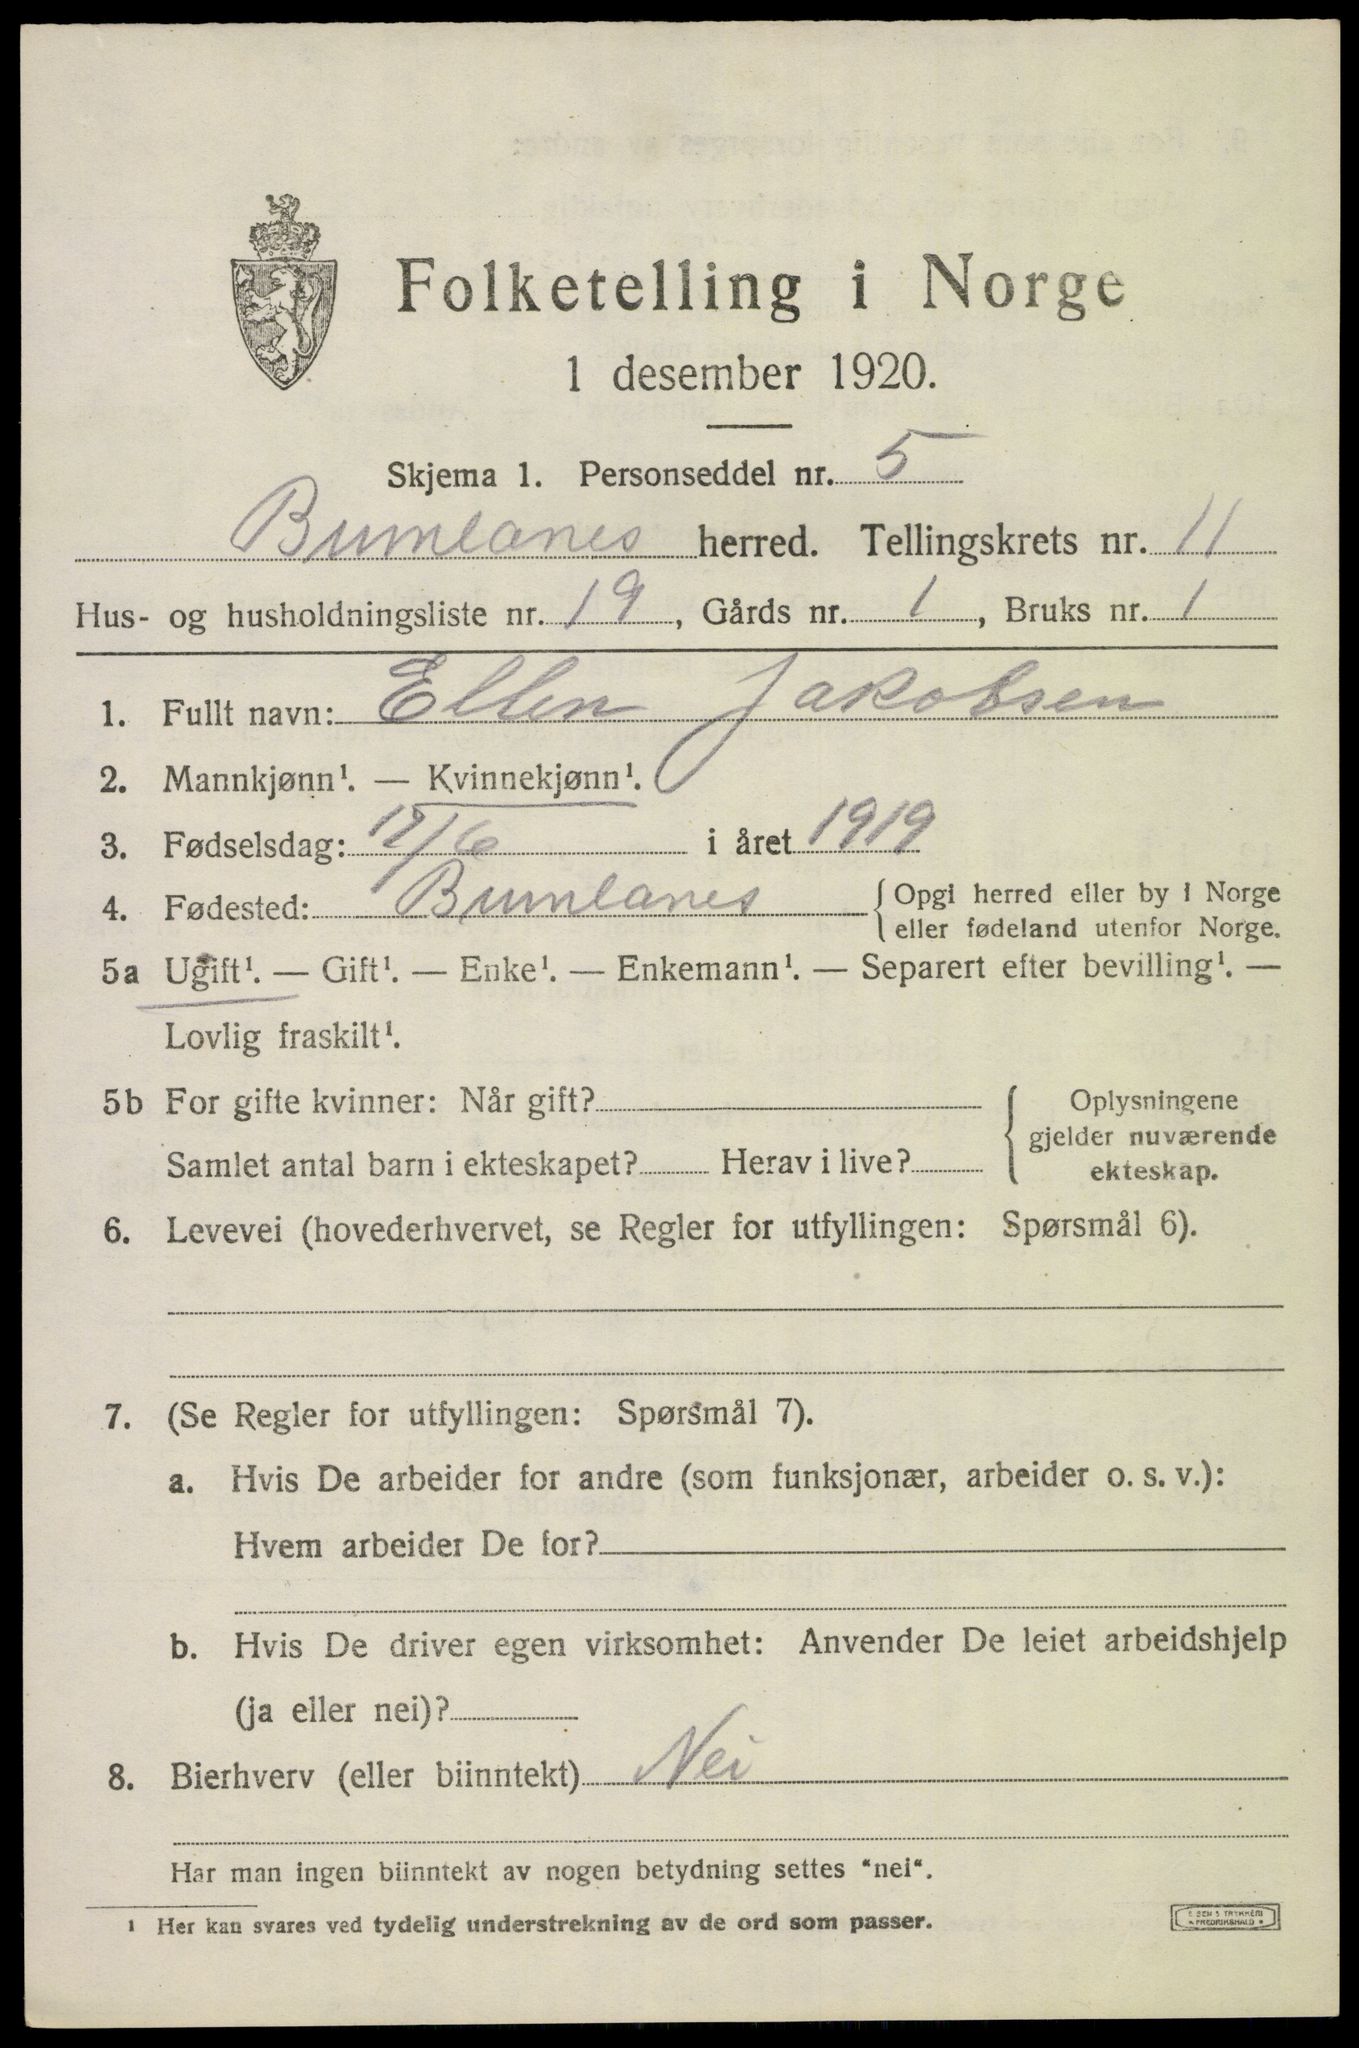 Folketelling i Norge
1 desember 1920.
Skjema 1. Personseddel nr. 5
Brunlanes herred. Tellingskrets nr. 11
Hus- og husholdningsliste nr. 19, Gårds nr. 1, Bruks nr. 1
1. Fullt navn: Ellen Jakobsen
2. Mannkjønn¹. — Kvinnekjønn¹.
3. Fødselsdag: 12/6 i året 1919
4. Fødested: Brunlanes {Opgi herred eller by i Norge
eller fødeland utenfor Norge.
5a Ugift¹. — Gift¹. — Enke¹. — Enkemann¹. — Separert efter bevilling¹. —
Lovlig fraskilt¹.
5b For gifte kvinner: Når gift? { Oplysningene
gjelder nuværende
Samlet antal barn i ekteskapet? Herav i live?
ekteskap.
6. Levevei (hovederhvervet, se Regler for utfyllingen: Spørsmål 6).
7. (Se Regler for utfyllingen: Spørsmål 7).
a. Hvis De arbeider for andre (som funksjonær, arbeider o. s. v.):
Hvem arbeider De for?
b. Hvis De driver egen virksomhet: Anvender De leiet arbeidshjelp
(ja eller nei)?
8. Bierhverv (eller biinntekt) Nei
Har man ingen biinntekt av nogen betydning settes "nei".
¹ Her kan svares ved tydelig understrekning av de ord som passer.
TRYKKERI
FREDRIKSHALD